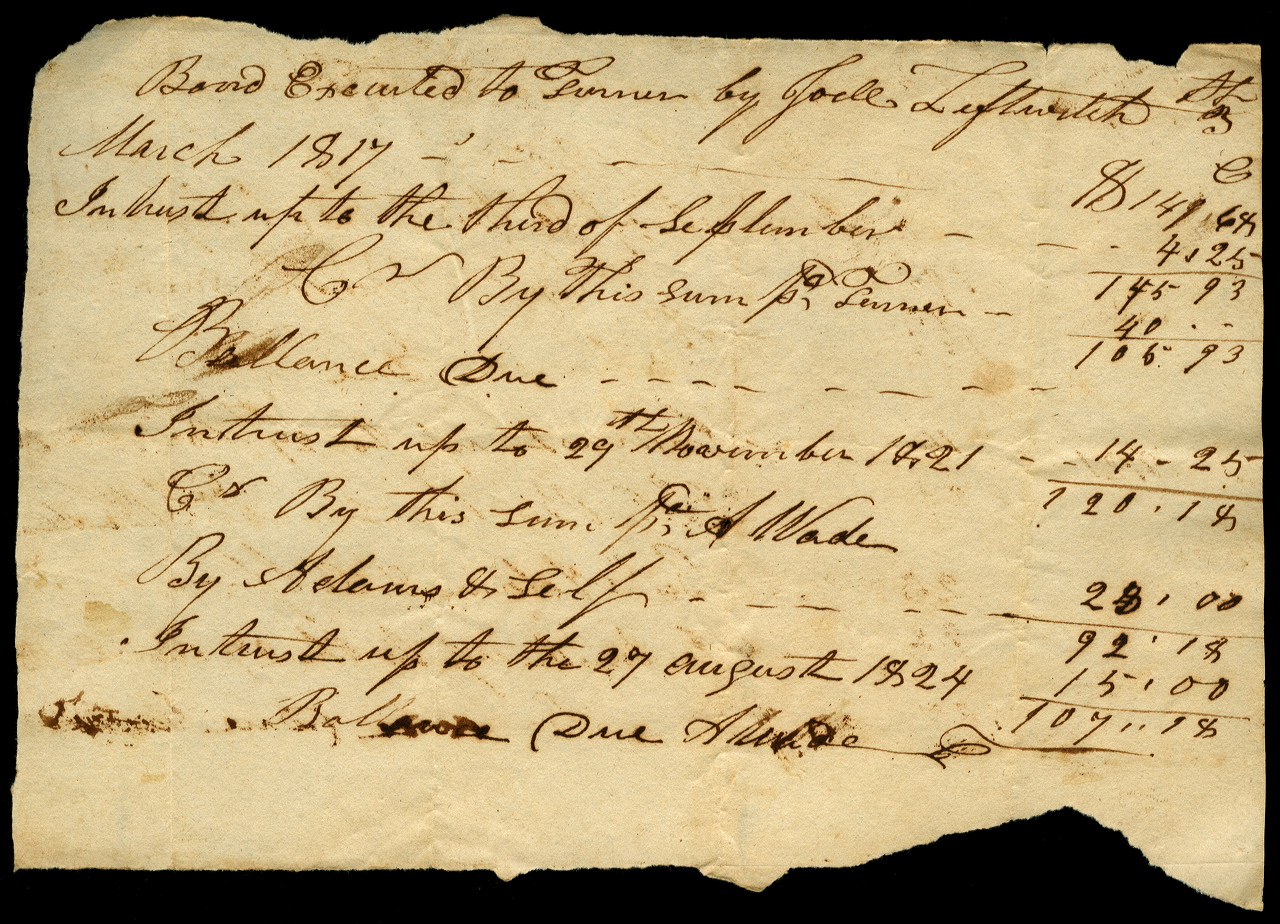 Bond Executed to Turner by Joell Leftwitch 3th
March 1817 - - - C
Intrust up to the third of September - - - $ 141,68
4,25
Cr By this sum pd, Turner - 145 93
40 . -
Ballance Due - - - - - - - - 105. 93
Intrust up to 29th November 1821 - - 14 - 25
120 . 18
Cr By this sum pd, A Wade
By Adams & Self - - - - - - 28, 00
92 , 18
Intrust up to the 27 august 1824 15, 00
Ballance Due A Wade 107,, 18